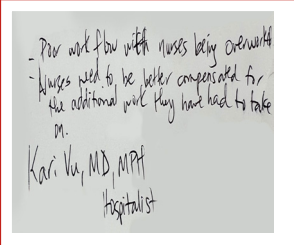 - Poor work flow with nurses being overworked
- Nurses need to be better compensated for
the additional work they have had to take
on.
Kari Vu, MD, MPH
Hospitalist